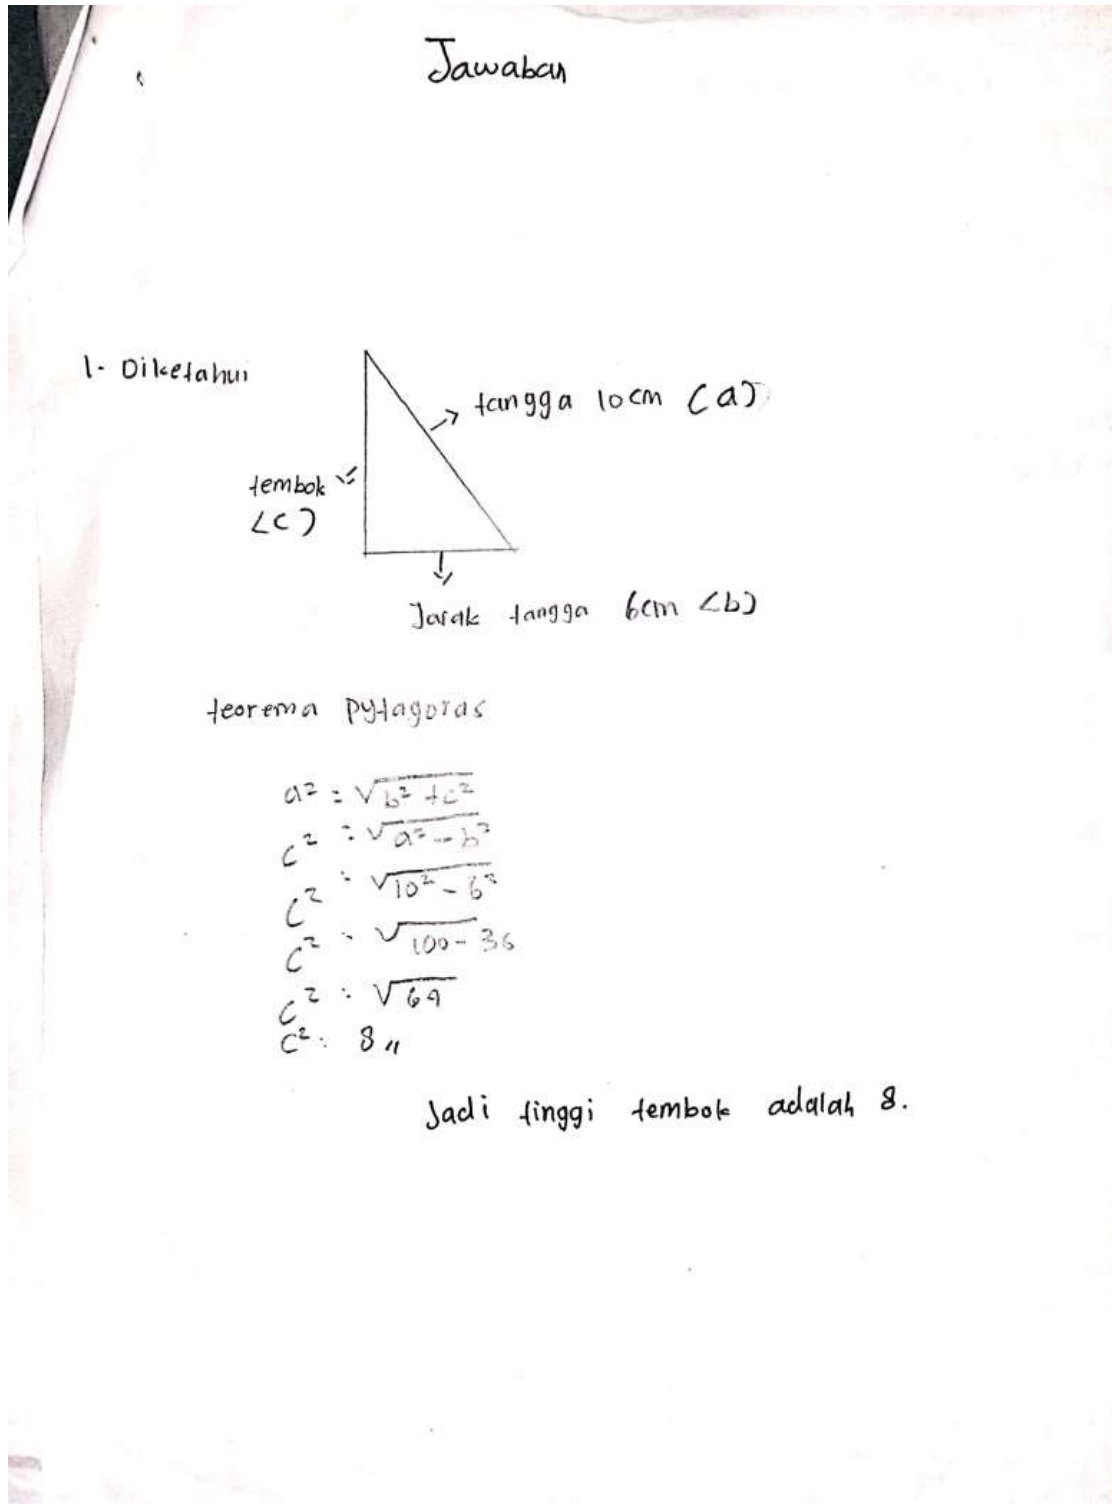 Jawaban
1. Diketahui
tangga 10cm (a)
tembok
(c)
Jarak tangga 6cm (b)
teorema pytagoras
a² = √b² + c²
c² = √a² - b²
c² = √10² - 6²
c² = √100 - 36
c² = √64
c² = 8 "
Jadi tinggi tembok adalah 8.